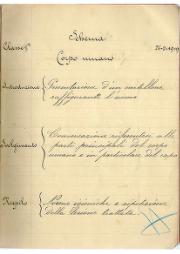 Schema
Classe Iª
Corpo umano
Introduzione { Presentazione d'un modellino
raffigurante l'uomo
Svolgimento { Conversazione riferentesi alle
parti principali del corpo
umano e in particolare del capo
Riepilo { Norme igieniche e ripetizione
della lezione trattata.